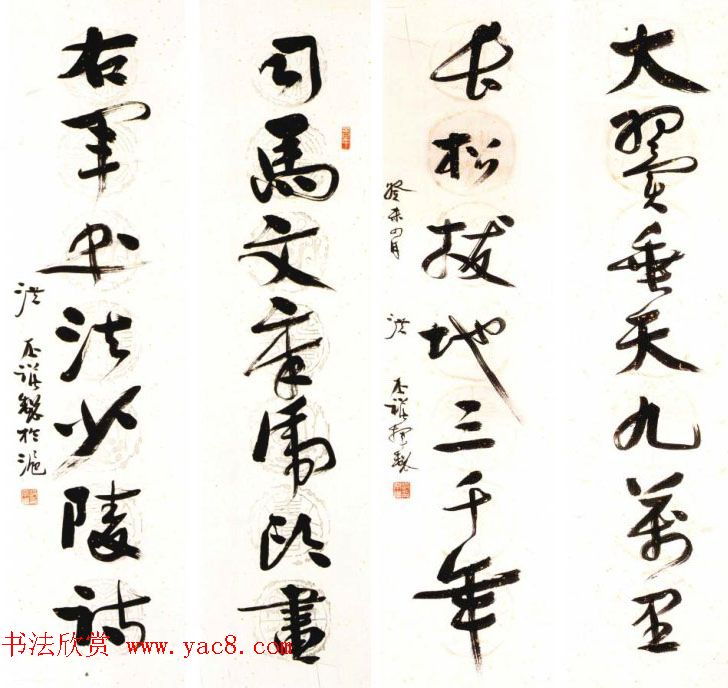 大翼垂天九萬里
長松拔地三千年
癸未四月 洪丕謨
司馬文章虎頭畫
右軍書法少陵詩
洪丕謨製於滬
书法欣赏 www.yac8.com